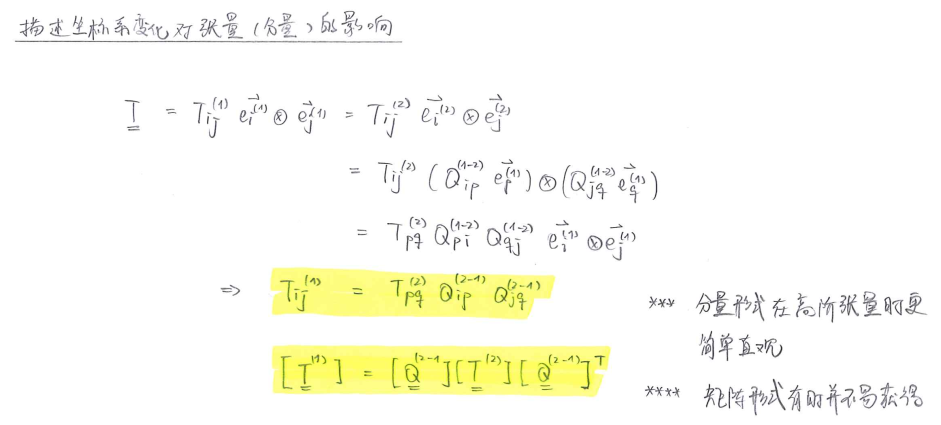 描述坐标系变化对张量(分量)的影响
T = T_{ij}^{(1)} \vec{e_i}^{(1)} ⊗ \vec{e_j}^{(1)} = T_{ij}^{(2)} \vec{e_i}^{(2)} ⊗ \vec{e_j}^{(2)}
= T_{ij}^{(2)} (Q_{ip}^{(1-2)} \vec{e_p}^{(1)}) ⊗ (Q_{jq}^{(1-2)} \vec{e_q}^{(1)})
= T_{pq}^{(2)} Q_{pi}^{(1-2)} Q_{qj}^{(1-2)} \vec{e_i}^{(1)} ⊗ \vec{e_j}^{(1)}
⇒ T_{ij}^{(1)} = T_{pq}^{(2)} Q_{ip}^{(2-1)} Q_{jq}^{(2-1)}
*** 分量形式在高阶张量时更
简单直观
[T^{(1)}] = [Q^{(2-1)}][T^{(2)}][Q^{(2-1)}]^T
**** 矩阵形式有时并不易获得